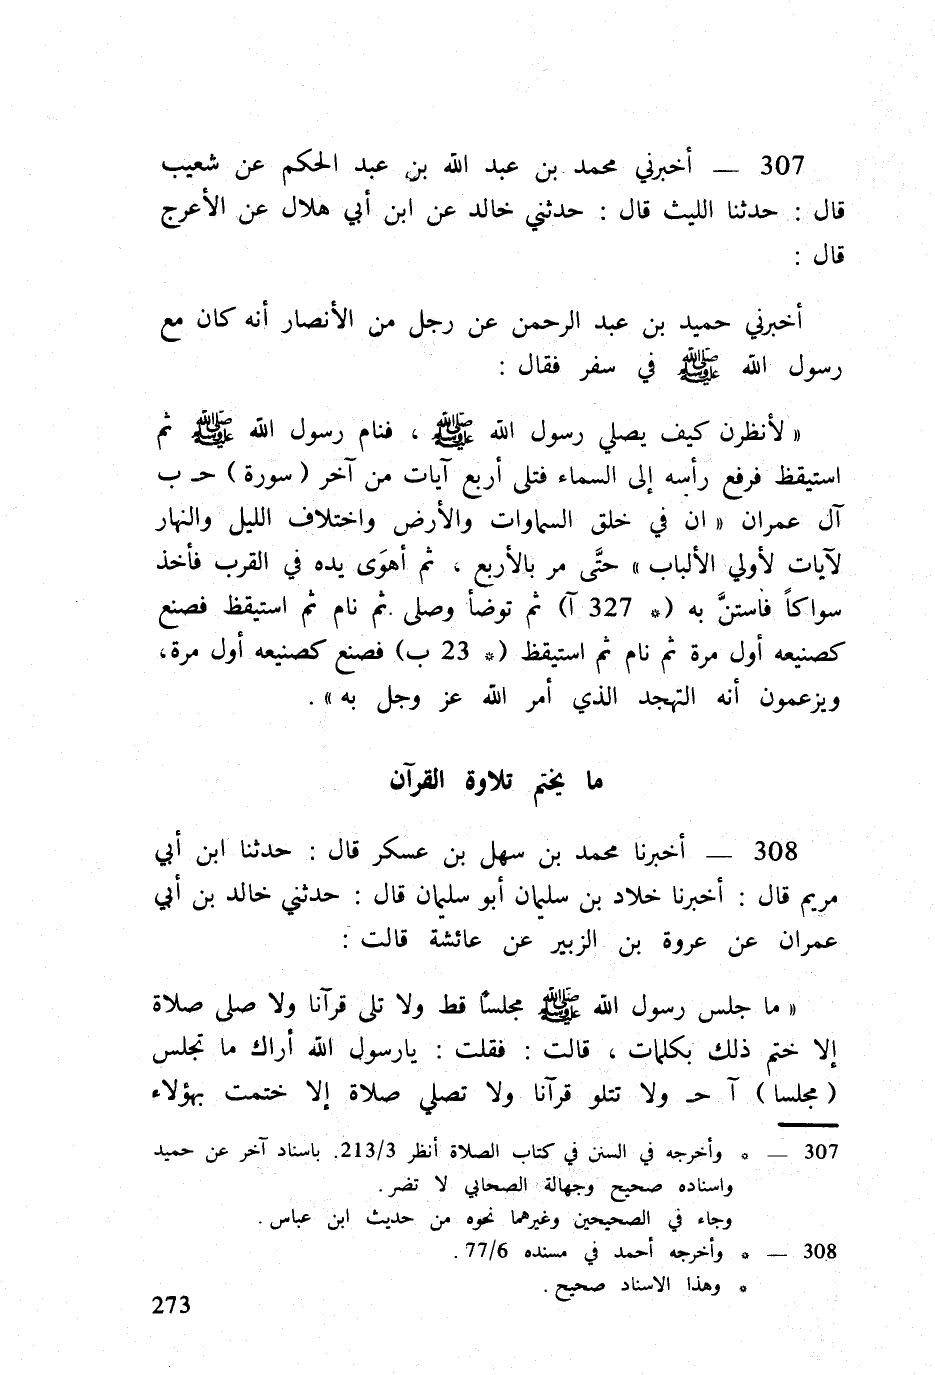 307 — أخبرني محمد بن عبد الله بن عبد الحكم عن شعيب
قال : حدثنا الليث قال : حدثني خالد عن ابن أبي هلال عن الأعرج
قال :
أخبرني حميد بن عبد الرحمن عن رجل من الأنصار أنه كان مع
رسول الله ﷺ في سفر فقال :
« لأنظرن كيف يصلي رسول الله ﷺ ، فنام رسول الله ﷺ ثم
استيقظ فرفع رأسه إلى السماء فتلى أربع آيات من آخر ( سورة ) حـ ب
آل عمران « ان في خلق السماوات والأرض واختلاف الليل والنهار
لآيات لأولي الألباب » حتَّى مر بالأربع ، ثم أهوَى يده في القرب فأخذ
سواكاً فاستنَّ به (* 327 آ) ثم توضأ وصلى .ثم نام ثم استيقظ فصنع
كصنيعه أول مرة ثم نام ثم استيقظ (* 23 ب) فصنع كصنيعه أول مرة،
ويزعمون أنه التهجد الذي أمر الله عز وجل به » .
ما يختم تلاوة القرآن
308 — أخبرنا محمد بن سهل بن عسكر قال : حدثنا ابن أبي
مريم قال : أخبرنا خلاد بن سليمان أبو سليمان قال : حدثني خالد بن أبي
عمران عن عروة بن الزبير عن عائشة قالت :
« ما جلس رسول الله ﷺ مجلساً قط ولا تلى قرآنا ولا صلى صلاة
إلا ختم ذلك بكلمات ، قالت : فقلت : يارسول الله أراك ما تجلس
( مجلسا ) آ حـ ولا تتلو قرآنا ولا تصلي صلاة إلا ختمت بهؤلاء
307 — * وأخرجه في السنن في كتاب الصلاة أنظر 213/3. باسناد آخر عن حميد
واسناده صحيح وجهالة الصحابي لا تضر .
وجاء في الصحيحين وغيرهما نحوه من حديث ابن عباس .
308 — * وأخرجه أحمد في مسنده 77/6 .
* وهذا الاسناد صحيح .
273